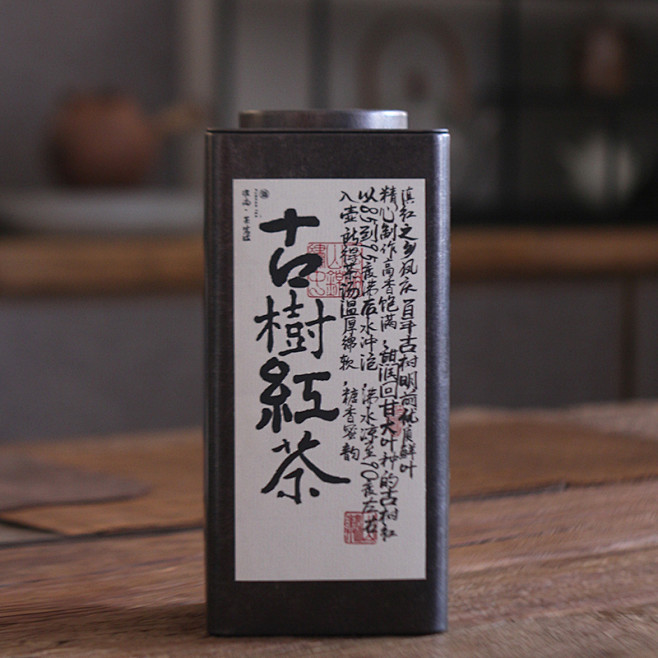 古樹紅茶
滇红之乡凤庆百年古树明前优质鲜叶
精心制作高香饱满,甜润回甘大叶种的古树红
以85到95度沸后水冲泡 沸水凉至90度左右
入壶所得茶汤温厚绵软,糖香蜜韵